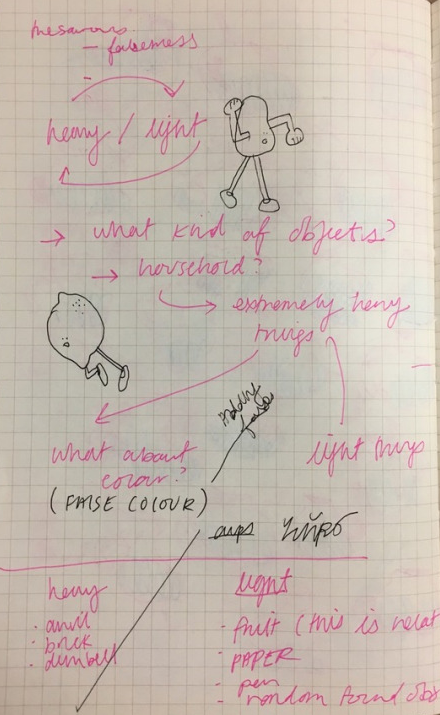 thesaurus
- falseness
-
heavy / light
→ what kind of objects?
→ household?
→ extremely heavy
things
what about
colour?
light things
(FALSE COLOUR)
heavy
light
· anvil
· brick
· dumbell
- fruit (this is relat
- PAPER
- pen
- random found obs